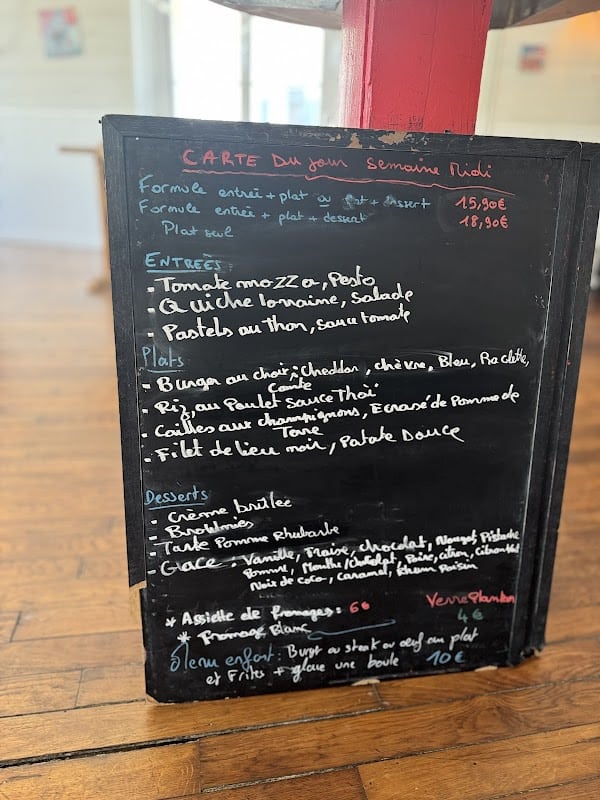 CARTE Du Jour Semaine Midi
Formule entrée + plat ou plat + dessert 15,90€
Formule entrée + plat + dessert 18,90€
Plat seul
ENTREES
- Tomate mozza, Pesto
- Quiche lorraine, Salade
- Pastels au thon, sauce tomate
Plats
- Burger au choix: Cheddar, chèvre, Bleu, Raclette,
Comté
- Riz, au Poulet Sauce Thaï
- Cailles aux champignons, Ecrasé de Pomme de
Terre
- Filet de lieu noir, Patate Douce
Desserts
- Crème brûlée
- Brownies
- Tarte Pomme Rhubarbe
- Glace: Vanille, Fraise, chocolat, Nougat, Pistache
Pomme, Menthe/chocolat, Poire, citron, Citron Vert
Noix de coco, caramel, Rhum Raisin
* Assiette de fromages: 6€
Verre Planteur
* Fromage Blanc
4€
Menu enfant: Burger ou steak ou oeuf au plat
et Frites + glace une boule 10€